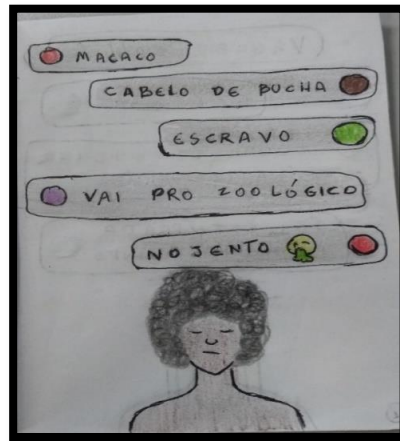 MACACO
CABELO DE BUCHA
ESCRAVO
VAI PRO ZOOLÓGICO
NOJENTO